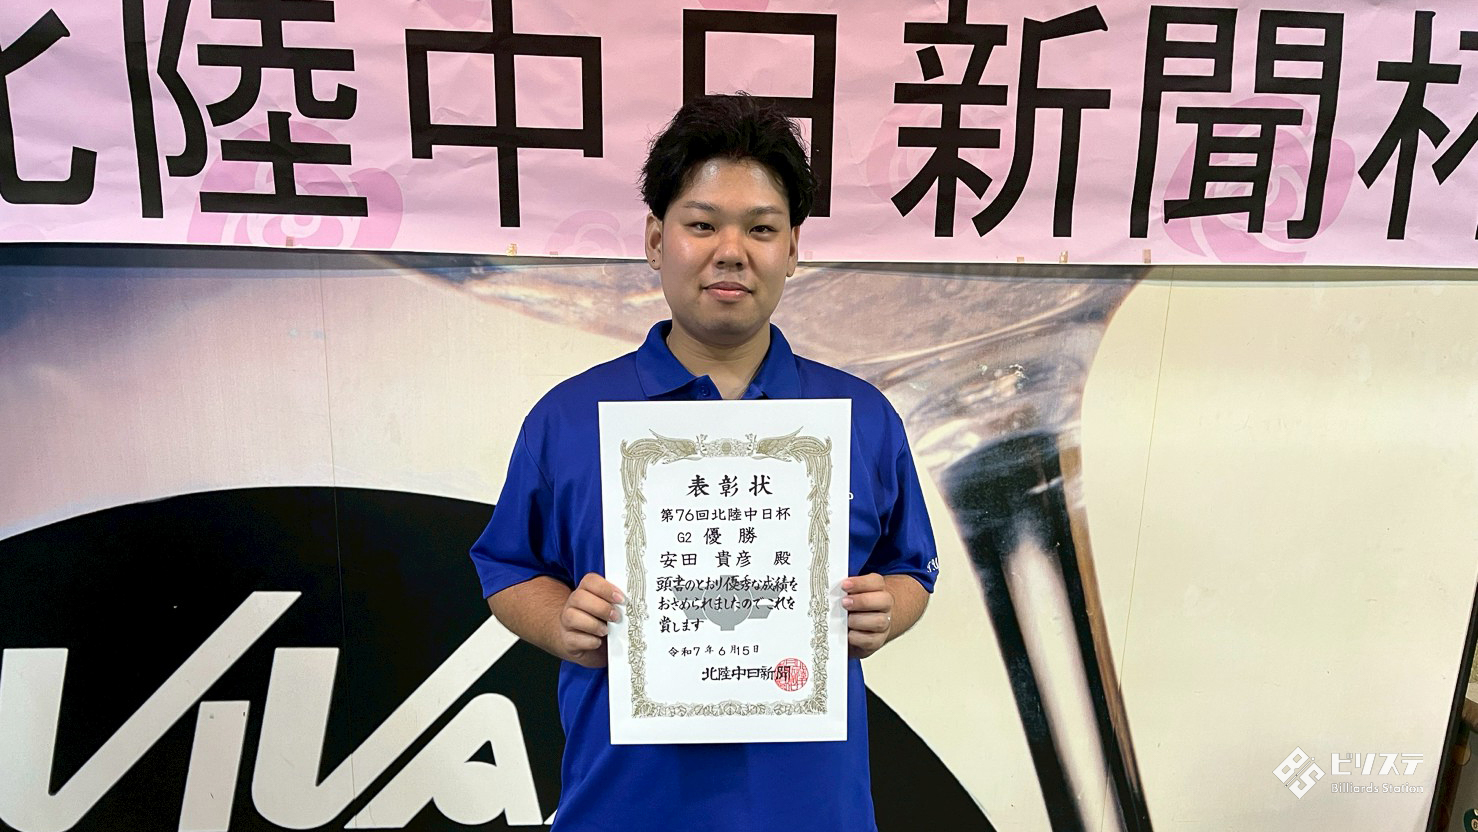 北陸中日新聞杯
表彰状
第76回北陸中日杯
G2 優勝
安田 貴彦 殿
頭書のとおり優秀な成績を
おさめられましたのでこれを
賞します
令和7年6月15日
北陸中日新聞
VIVA
ビリステ
Billiards Station